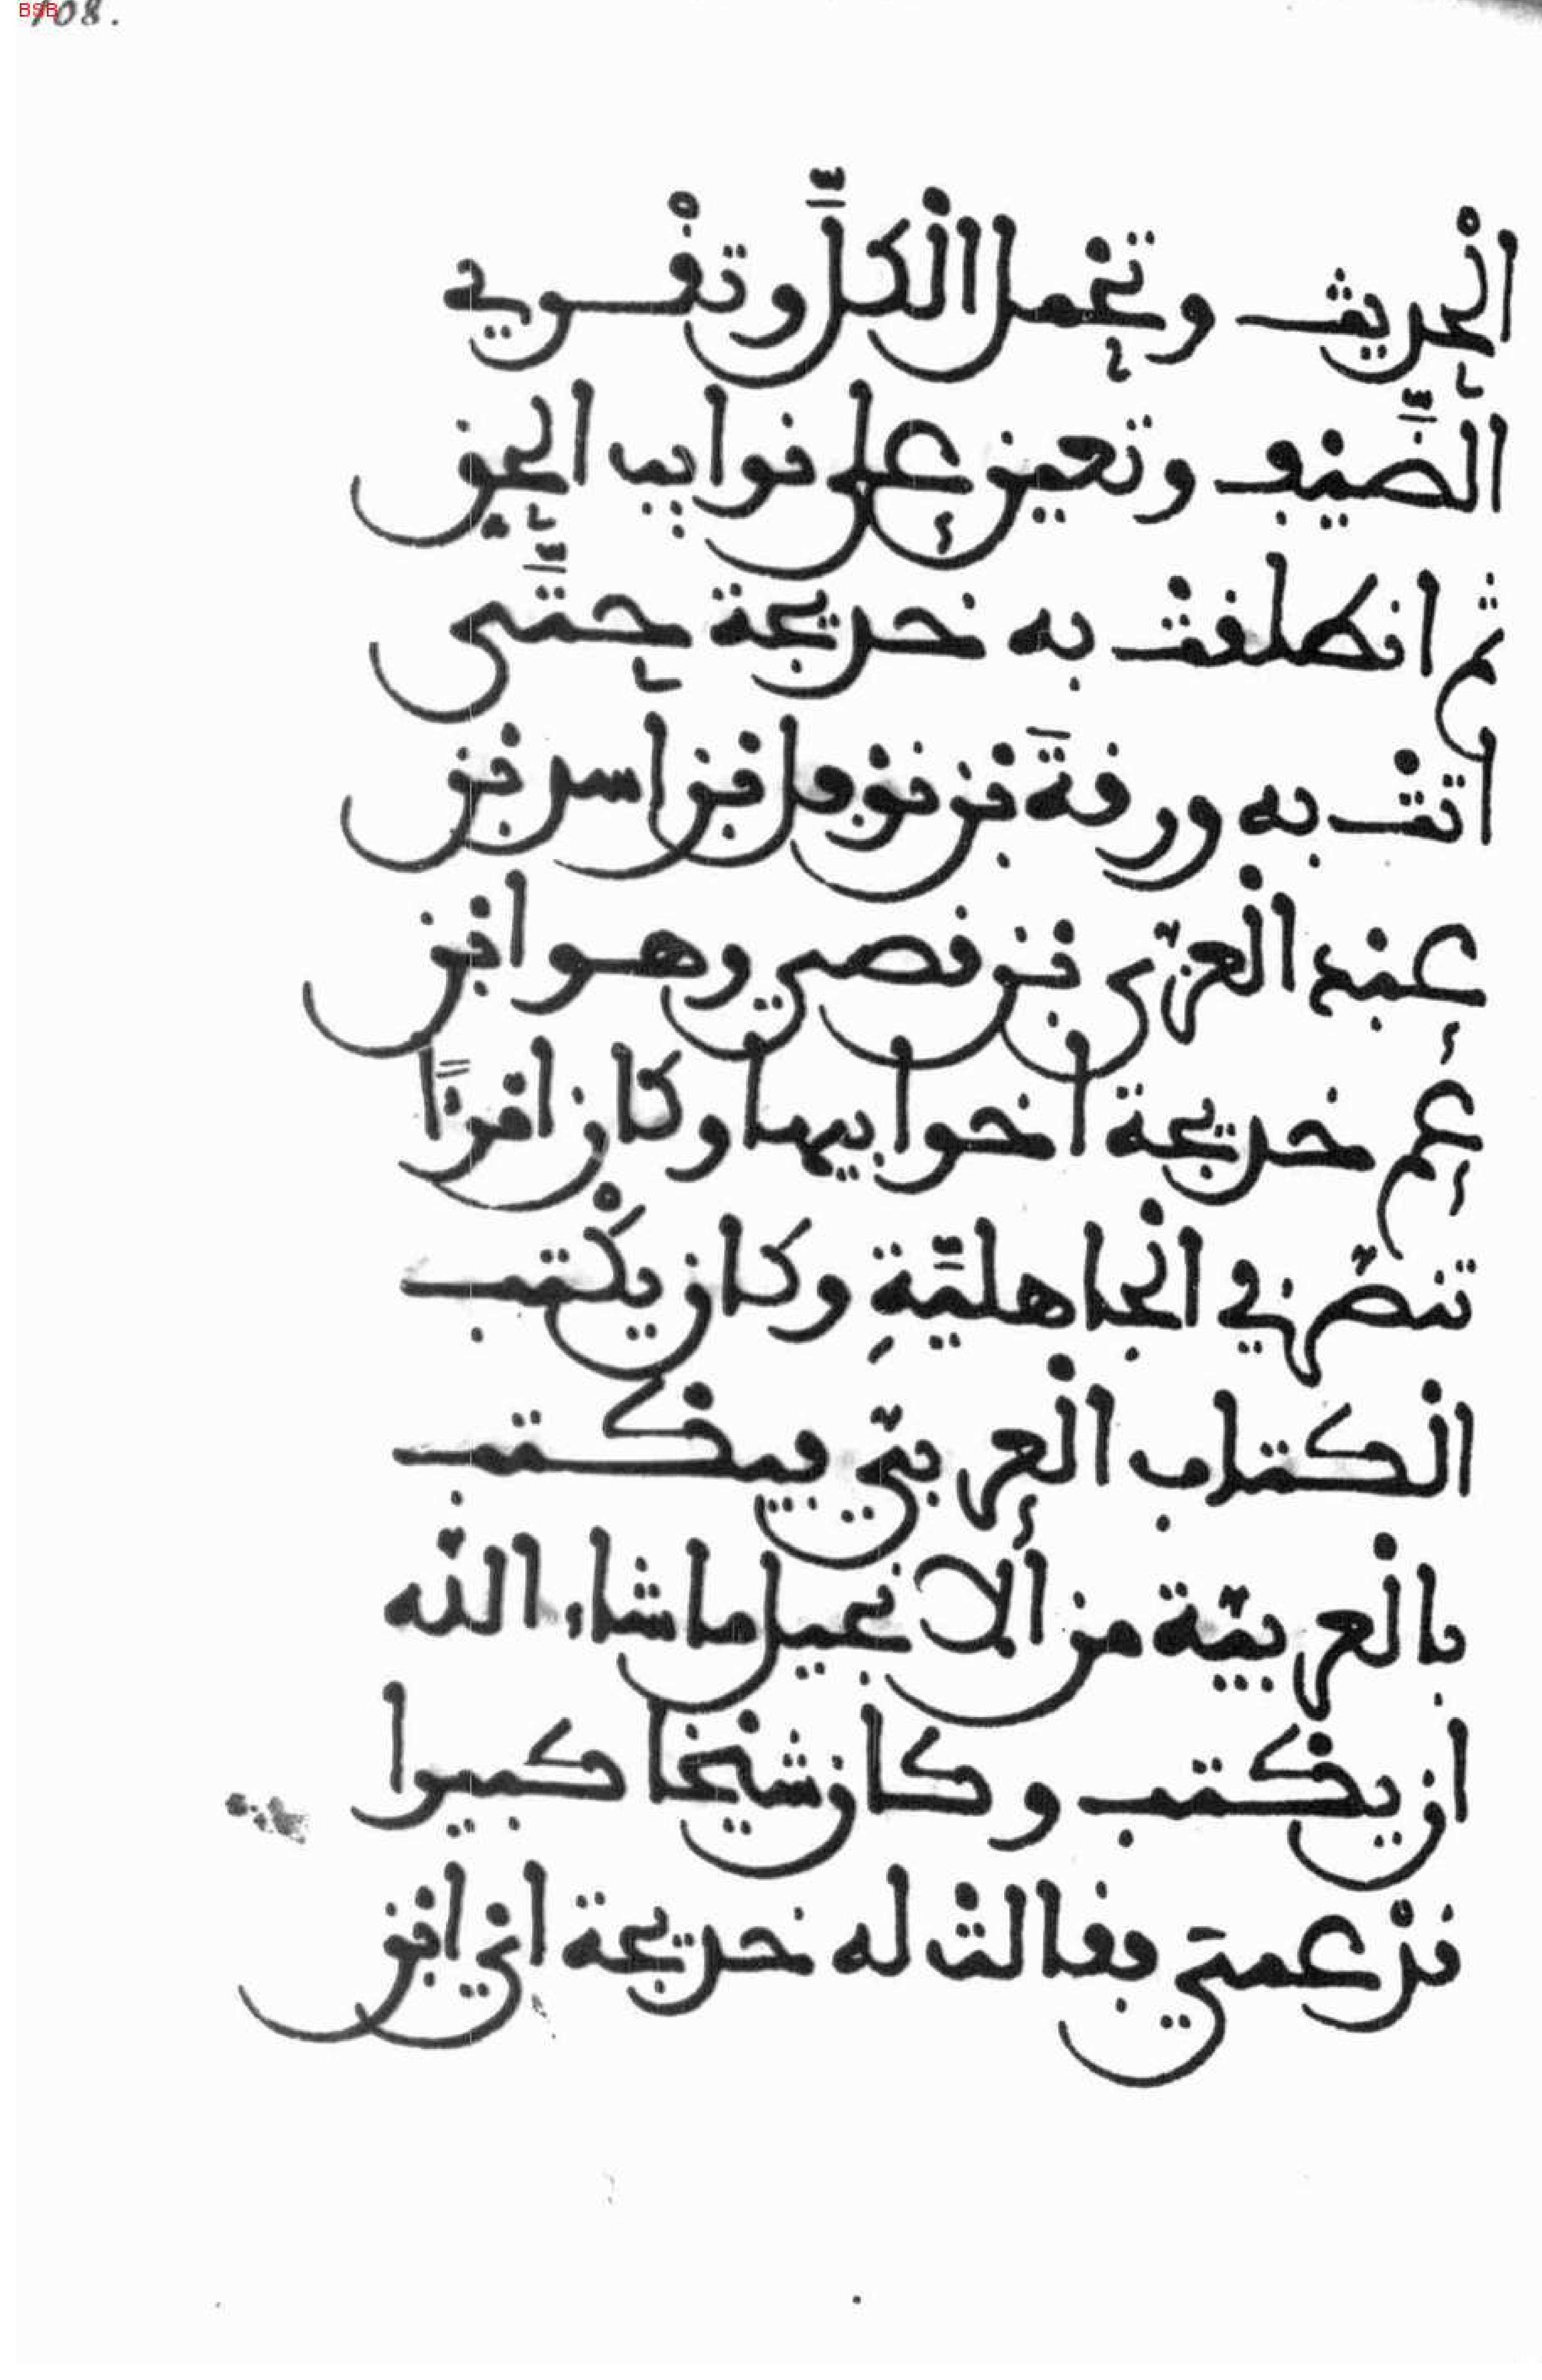 108.
BSB
الحديث وتحمل الكلّ وتقري
الضّيف وتعين على نوايب الحق
ثم انطلقت به خديجة حتّى
اتت به ورقة بن نوفل بن اسد بن
عبد العزّى بن قصي وهو ابن
عم خديجة اخو ابيها وكان امرءًا
تنصّر في الجاهليّةِ وكان يكْتب
الكتاب العربيّ فيكتب
بالعربيّة من الانجيل ما شاء الله
ان يكتب وكان شيخا كبيرا
قد عمي فقالت له خديجة اي ابن